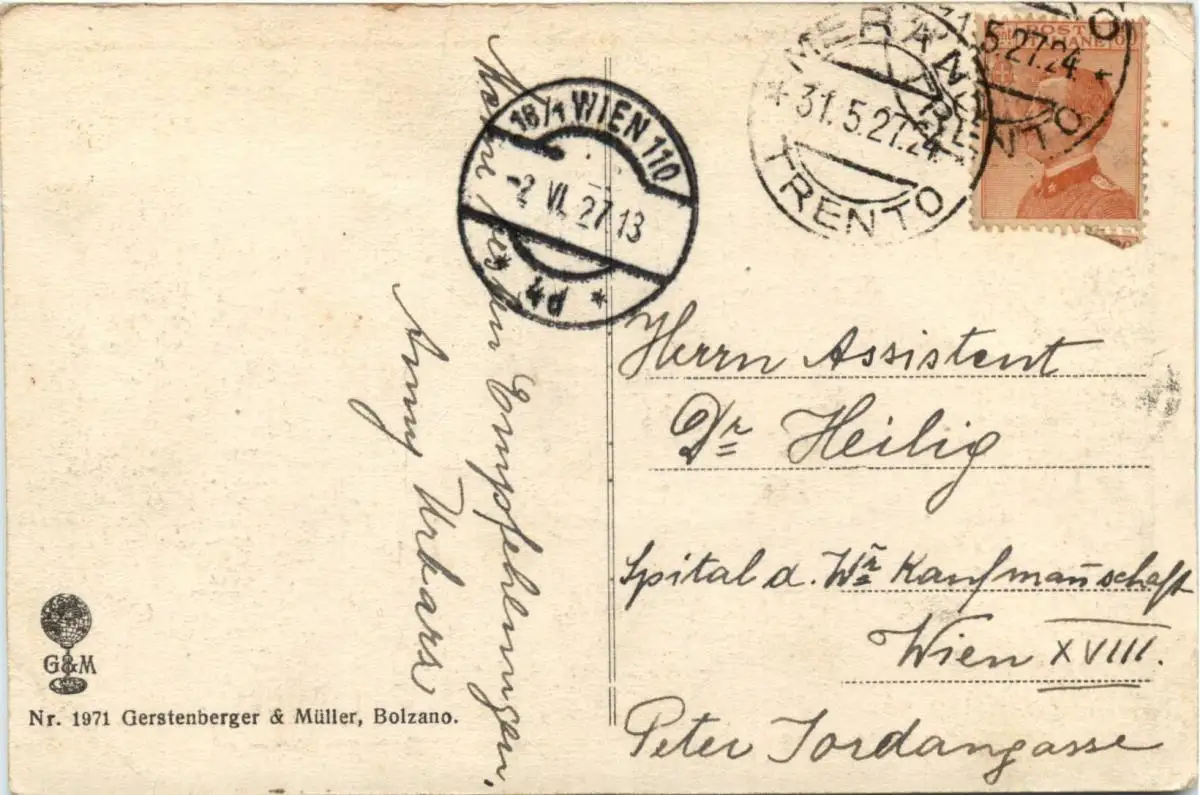 Meine besten Empfehlungen.
Anny
18/1 WIEN 110
-2. VI. 27 13
* 4d *
MERANO
* 31.5.27.24 *
TRENTO
31.5.27.24 *
TRENTO
POSTE
ITALIANE
60
Herrn Assistent
Dr Heilig
Spital d. Wr Kaufmannschaft
Wien XVIII.
Peter Jordangasse
G&M
Nr. 1971 Gerstenberger & Müller, Bolzano.